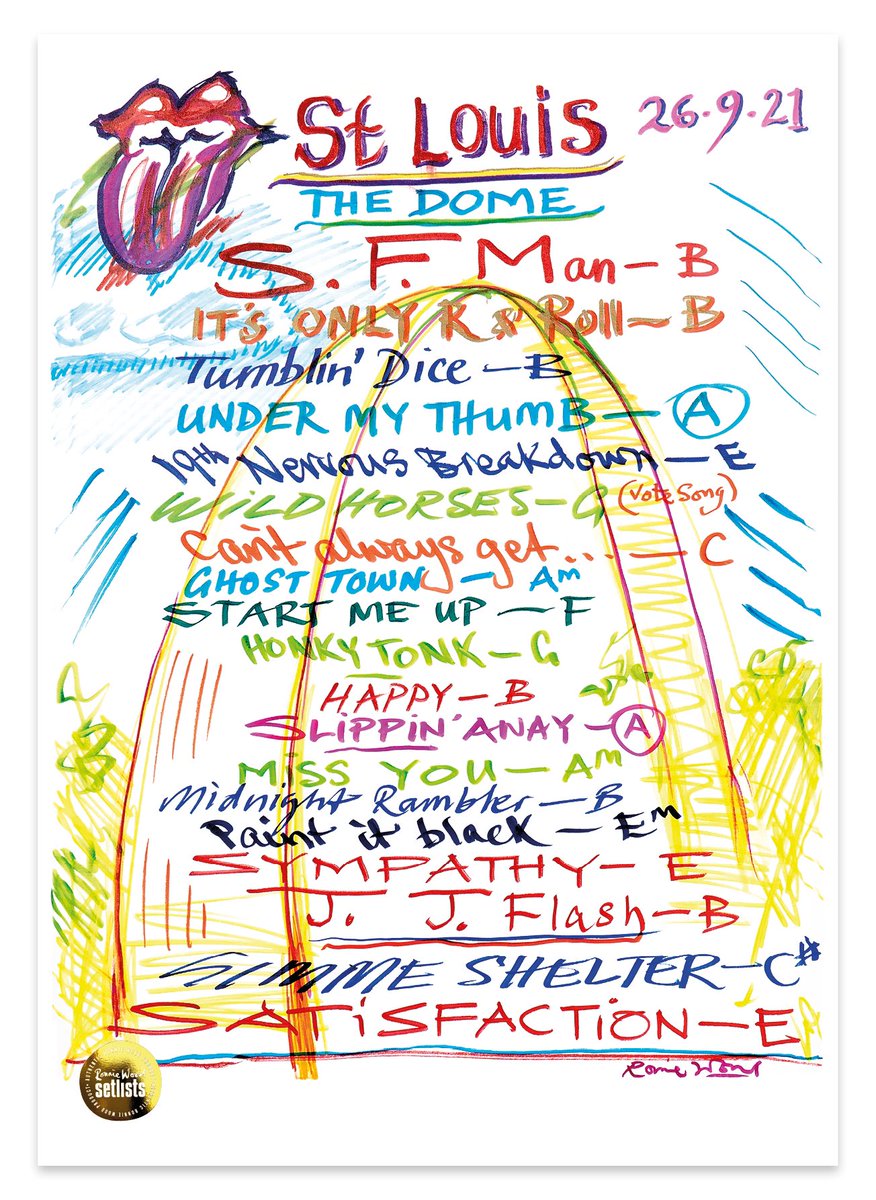 St Louis 26.9.21
THE DOME
S. F. Man - B
IT'S ONLY R & Roll - B
Tumblin' Dice - B
UNDER MY THUMB - A
19th Nervous Breakdown - E
WILD HORSES - G (Vote Song)
Can't always get... - C
GHOST TOWN - Am
START ME UP - F
HONKY TONK - G
HAPPY - B
SLIPPIN' AWAY - A
MISS YOU - Am
Midnight Rambler - B
Paint it black - Em
SYMPATHY - E
J. J. Flash - B
GIMME SHELTER - C#
SATiSFACTiON - E
Ronnie Wood
Ronnie Wood
setlists